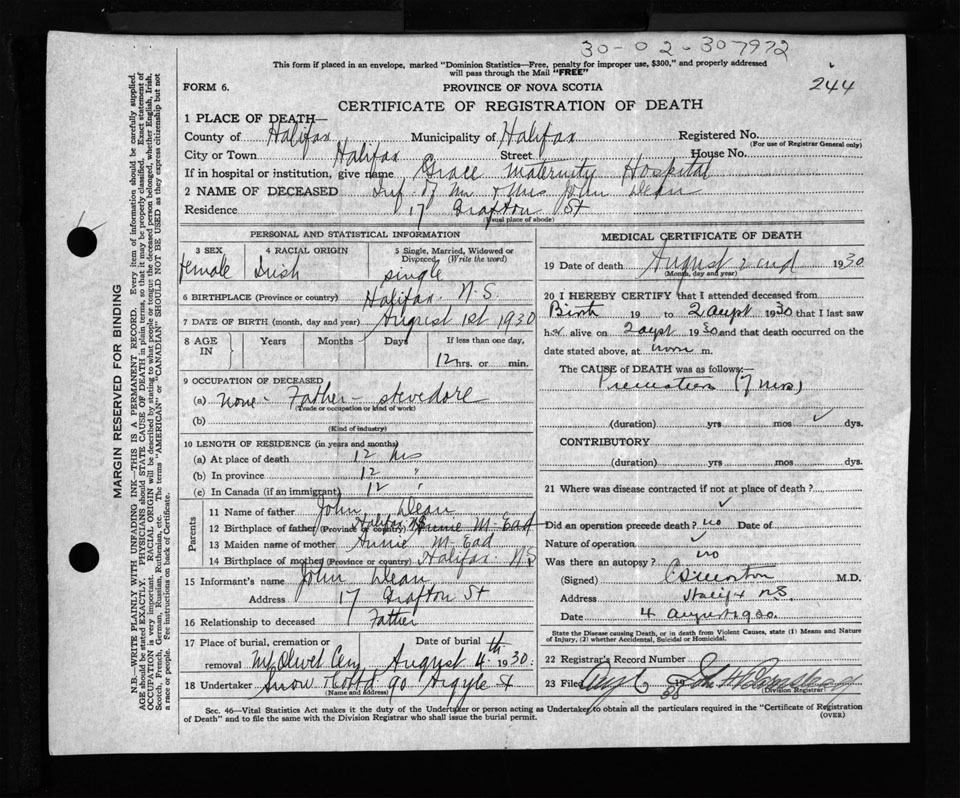 30-02-307972
244
This form if placed in an envelope, marked "Dominion Statistics—Free, penalty for improper use, $300," and properly addressed
will pass through the Mail "FREE"
FORM 6.
PROVINCE OF NOVA SCOTIA
CERTIFICATE OF REGISTRATION OF DEATH
1 PLACE OF DEATH—
County of Halifax Municipality of Halifax Registered No.
(For use of Registrar General only)
City or Town Halifax Street House No.
If in hospital or institution, give name Grace Maternity Hospital
2 NAME OF DECEASED Inf of Mr & Mrs John Dean
Residence 17 Grafton St
(Usual place of abode)
PERSONAL AND STATISTICAL INFORMATION
3 SEX 4 RACIAL ORIGIN 5 Single, Married, Widowed or Divorced (Write the word)
female Irish single
6 BIRTHPLACE (Province or country) Halifax N.S.
7 DATE OF BIRTH (month, day and year) August 1st 1930
8 AGE IN Years Months Days If less than one day,
12 hrs. or min.
9 OCCUPATION OF DECEASED
(a) none - Father - stevedore
(Trade or occupation or kind of work)
(b)
(Kind of industry)
10 LENGTH OF RESIDENCE (in years and months)
(a) At place of death 12 hrs
(b) In province 12 "
(c) In Canada (if an immigrant) 12 "
Parents
11 Name of father John Dean
12 Birthplace of father (Province or country) Halifax NS Annie M. Ead
13 Maiden name of mother Annie M. Ead
14 Birthplace of mother (Province or country) Halifax N.S
15 Informant's name John Dean
Address 17 Grafton St
16 Relationship to deceased Father
17 Place of burial, cremation or Date of burial
removal Mt Olivet Cem August 4th 1930.
18 Undertaker Snow & Co Ltd 90 Argyle St
(Name and address)
MEDICAL CERTIFICATE OF DEATH
19 Date of death August 2nd 1930
(Month, day and year)
20 I HEREBY CERTIFY that I attended deceased from
Birth 19 to 2 augst 1930 that I last saw
her alive on 2 augst 1930 and that death occurred on the
date stated above, at noon m.
The CAUSE of DEATH was as follows:—
(7 mos)
(duration) yrs mos dys.
CONTRIBUTORY
(duration) yrs mos dys.
21 Where was disease contracted if not at place of death?
Did an operation precede death? no Date of
Nature of operation
Was there an autopsy? no
(Signed) M.D.
Address Halifx N.S.
Date 4 August 1930.
State the Disease causing Death, or in death from Violent Causes, state (1) Means and Nature
of Injury, (2) whether Accidental, Suicidal or Homicidal.
22 Registrar's Record Number
23 Filed Aug 6 1930 John H
(Division Registrar)
Sec. 46—Vital Statistics Act makes it the duty of the Undertaker or person acting as Undertaker to obtain all the particulars required in the "Certificate of Registration
of Death" and to file the same with the Division Registrar who shall issue the burial permit.
(OVER)
MARGIN RESERVED FOR BINDING
N.B.—WRITE PLAINLY WITH UNFADING INK—THIS IS A PERMANENT RECORD. Every item of information should be carefully supplied.
AGE should be stated EXACTLY. PHYSICIANS should STATE CAUSE OF DEATH in plain terms, so that it may be properly classified. Exact statement of
OCCUPATION is very important. RACIAL ORIGIN will be described by stating to what people or tongue the deceased person belonged, whether English, Irish,
Scotch, French, German, Russian, Ruthenian, etc. The terms "AMERICAN" or "CANADIAN" SHOULD NOT BE USED as they express citizenship but not
a race or people. Fee instructions on back of Certificate.